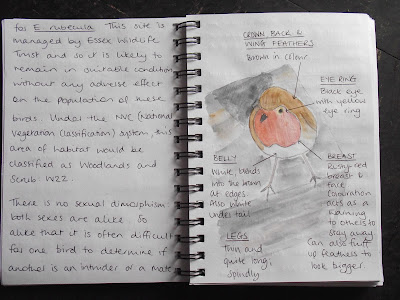 for E. rubecula. This site is
managed by Essex Wildlife
Trust and so it is likely to
remain in suitable condition
without any adverse effect
on the population of these
birds. Under the NVC (National
Vegetation Classification) system, this
area of habitat would be
classified as Woodlands and
Scrub W22.
There is no sexual dimorphism -
both sexes are alike. So
alike that it is often difficult
for one bird to determine if
another is an intruder or a mate
CROWN BACK &
WING FEATHERS
Brown in colour
EYE RING
Black eye
with yellow
eye ring
BELLY
White, blends
into the brown
at edges.
Also white
under tail
BREAST
Rusty red
breast &
face
Colouration
acts as a
warning
to others to
stay away
Can also fluff
up feathers to
look bigger
LEGS
Thin and
quite long.
Spindly